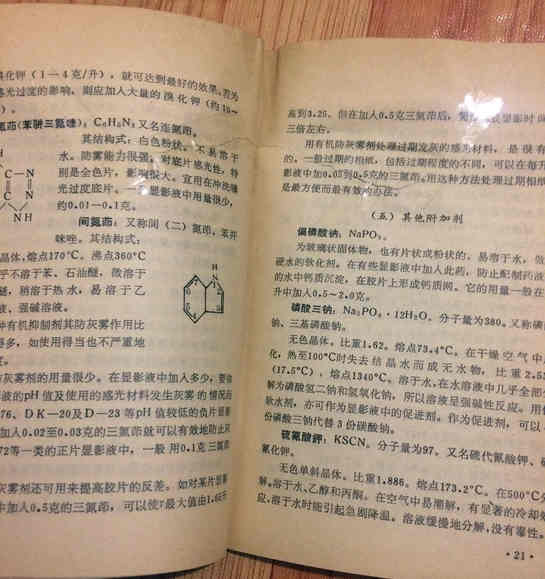 溴化钾（1—4克/升），就可达到最好的效果。若为
感光过度的影响，则应加入大量的溴化钾（约10—
）。
氮茚（苯骈三氮唑）：C₆H₅N₃又名连氮茚。
其结构式：白色粉状，不易溶于
水。防雾能力很强，对底片感光性，特
别是全色片，影响很大。宜用在冲洗曝
光过度底片。一般显影液中用量很少，
约0.01—0.1克。
间氮茚：又称间（二）氮茚，苯并
咪唑。其结构式：
晶体，熔点170℃。沸点360℃
乎不溶于苯、石油醚，微溶于
醚，稍溶于热水，易溶于乙
液、强碱溶液。
种有机抑制剂其防灰雾作用比
得多，如使用得当也不严重地
度。
灰雾剂的用量很少。在显影液中加入多少，要依
液的pH值及使用的感光材料发生灰雾的情况而
76、DK—20及D—23等pH值较低的负片显影
加入0.02至0.03克的三氮茚就可以有效地防止灰
72等一类的正片显影液中，一般用0.1克三氮茚
灰雾剂还可用来提高胶片的反差。如对某片显影
中加入0.5克的三氮茚，可以使r最大值由1.65升
C—N
C N
C
NH
H
N
N
高到3.25。但在加入0.5克三氮茚后，显影时间
三倍左右。
用有机防灰雾剂处理过期发灰的感光材料，是很有
的，一般过期的相纸，包括过期程度的不同，可以在每升
影液中加0.05到0.5克的三氮茚。用这种方法处理过期相纸
是最方便而最有效的办法。
（五）其他附加剂
偏磷酸钠：NaPO₃。
为玻璃状固体物，也有片状或粉状的。易溶于水，做
硬水的软化剂。在有些显影液中加入此药，防止配制药液
的水中钙质沉淀，在胶片上形成钙质网。它的用量一般在
升中加入0.5～2.0克。
磷酸三钠：Na₃PO₄·12H₂O。分子量为380。又称磷
钠、三基磷酸钠。
无色晶体。比重1.62。熔点73.4℃。在干燥空气中
化，热至100℃时失去结晶水而成无水物，比重2.5
（17.5℃），熔点1340℃。溶于水，在水溶液中几乎全部
解为磷酸氢二钠和氢氧化钠，所以溶液呈强碱性反应。用
软水剂，亦可作为显影液中的促进剂。作为促进剂，可以
份磷酸三钠代替3份碳酸钠。
硫氰酸钾：KSCN。分子量为97。又名硫代氰酸钾、硫
氰化钾。
无色单斜晶体。比重1.886。熔点173.2℃。在500℃分
解。溶于水、乙醇和丙酮。在空气中易潮解，有显著的冷却效
应，溶于水时能引起急剧降温。溶液缓慢地分解，没有毒性。
·21·